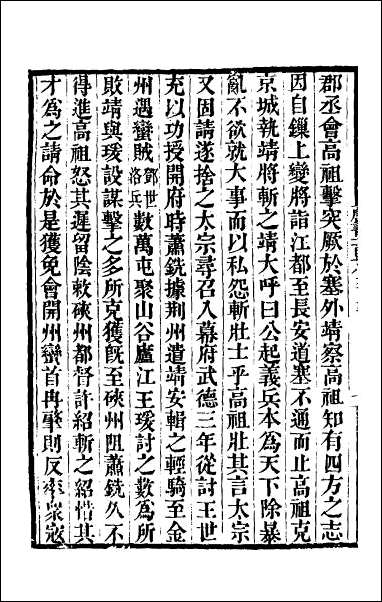 郡丞會高祖擊突厥於塞外靖察高祖知有四方之志
因自鏁上變將詣江都至長安道塞不通而止高祖克
京城執靖將斬之靖大呼曰公起義兵本為天下除暴
亂不欲就大事而以私怨斬壯士乎高祖壯其言太宗
又固請遂捨之太宗尋召入幕府武德三年從討王世
充以功授開府時蕭銑據荆州遣靖安輯之輕騎至金
州遇蠻賊鄧世洛兵數萬屯聚山谷廬江王瑗討之數為所
敗靖與瑗設謀擊之多所克獲旣至硤州阻蕭銑久不
得進高祖怒其遲留陰敕硤州都督許紹斬之紹惜其
才為之請命於是獲免會開州蠻首冉肇則反率衆寇